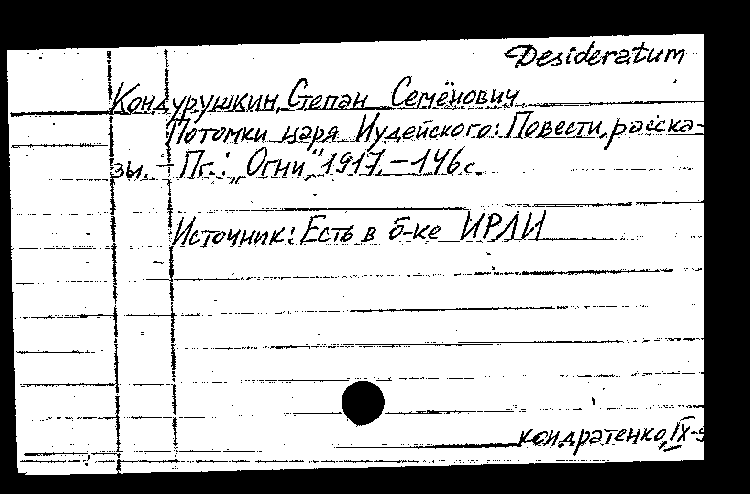 Desideratum
Кондурушкин, Степан Семёнович
Потомки царя Иудейского: Повести, расска-
зы. – Пг.: „Огни", 1917. – 146 с.
Источник: Есть в б-ке ИРЛИ
кондратенко, IX-9